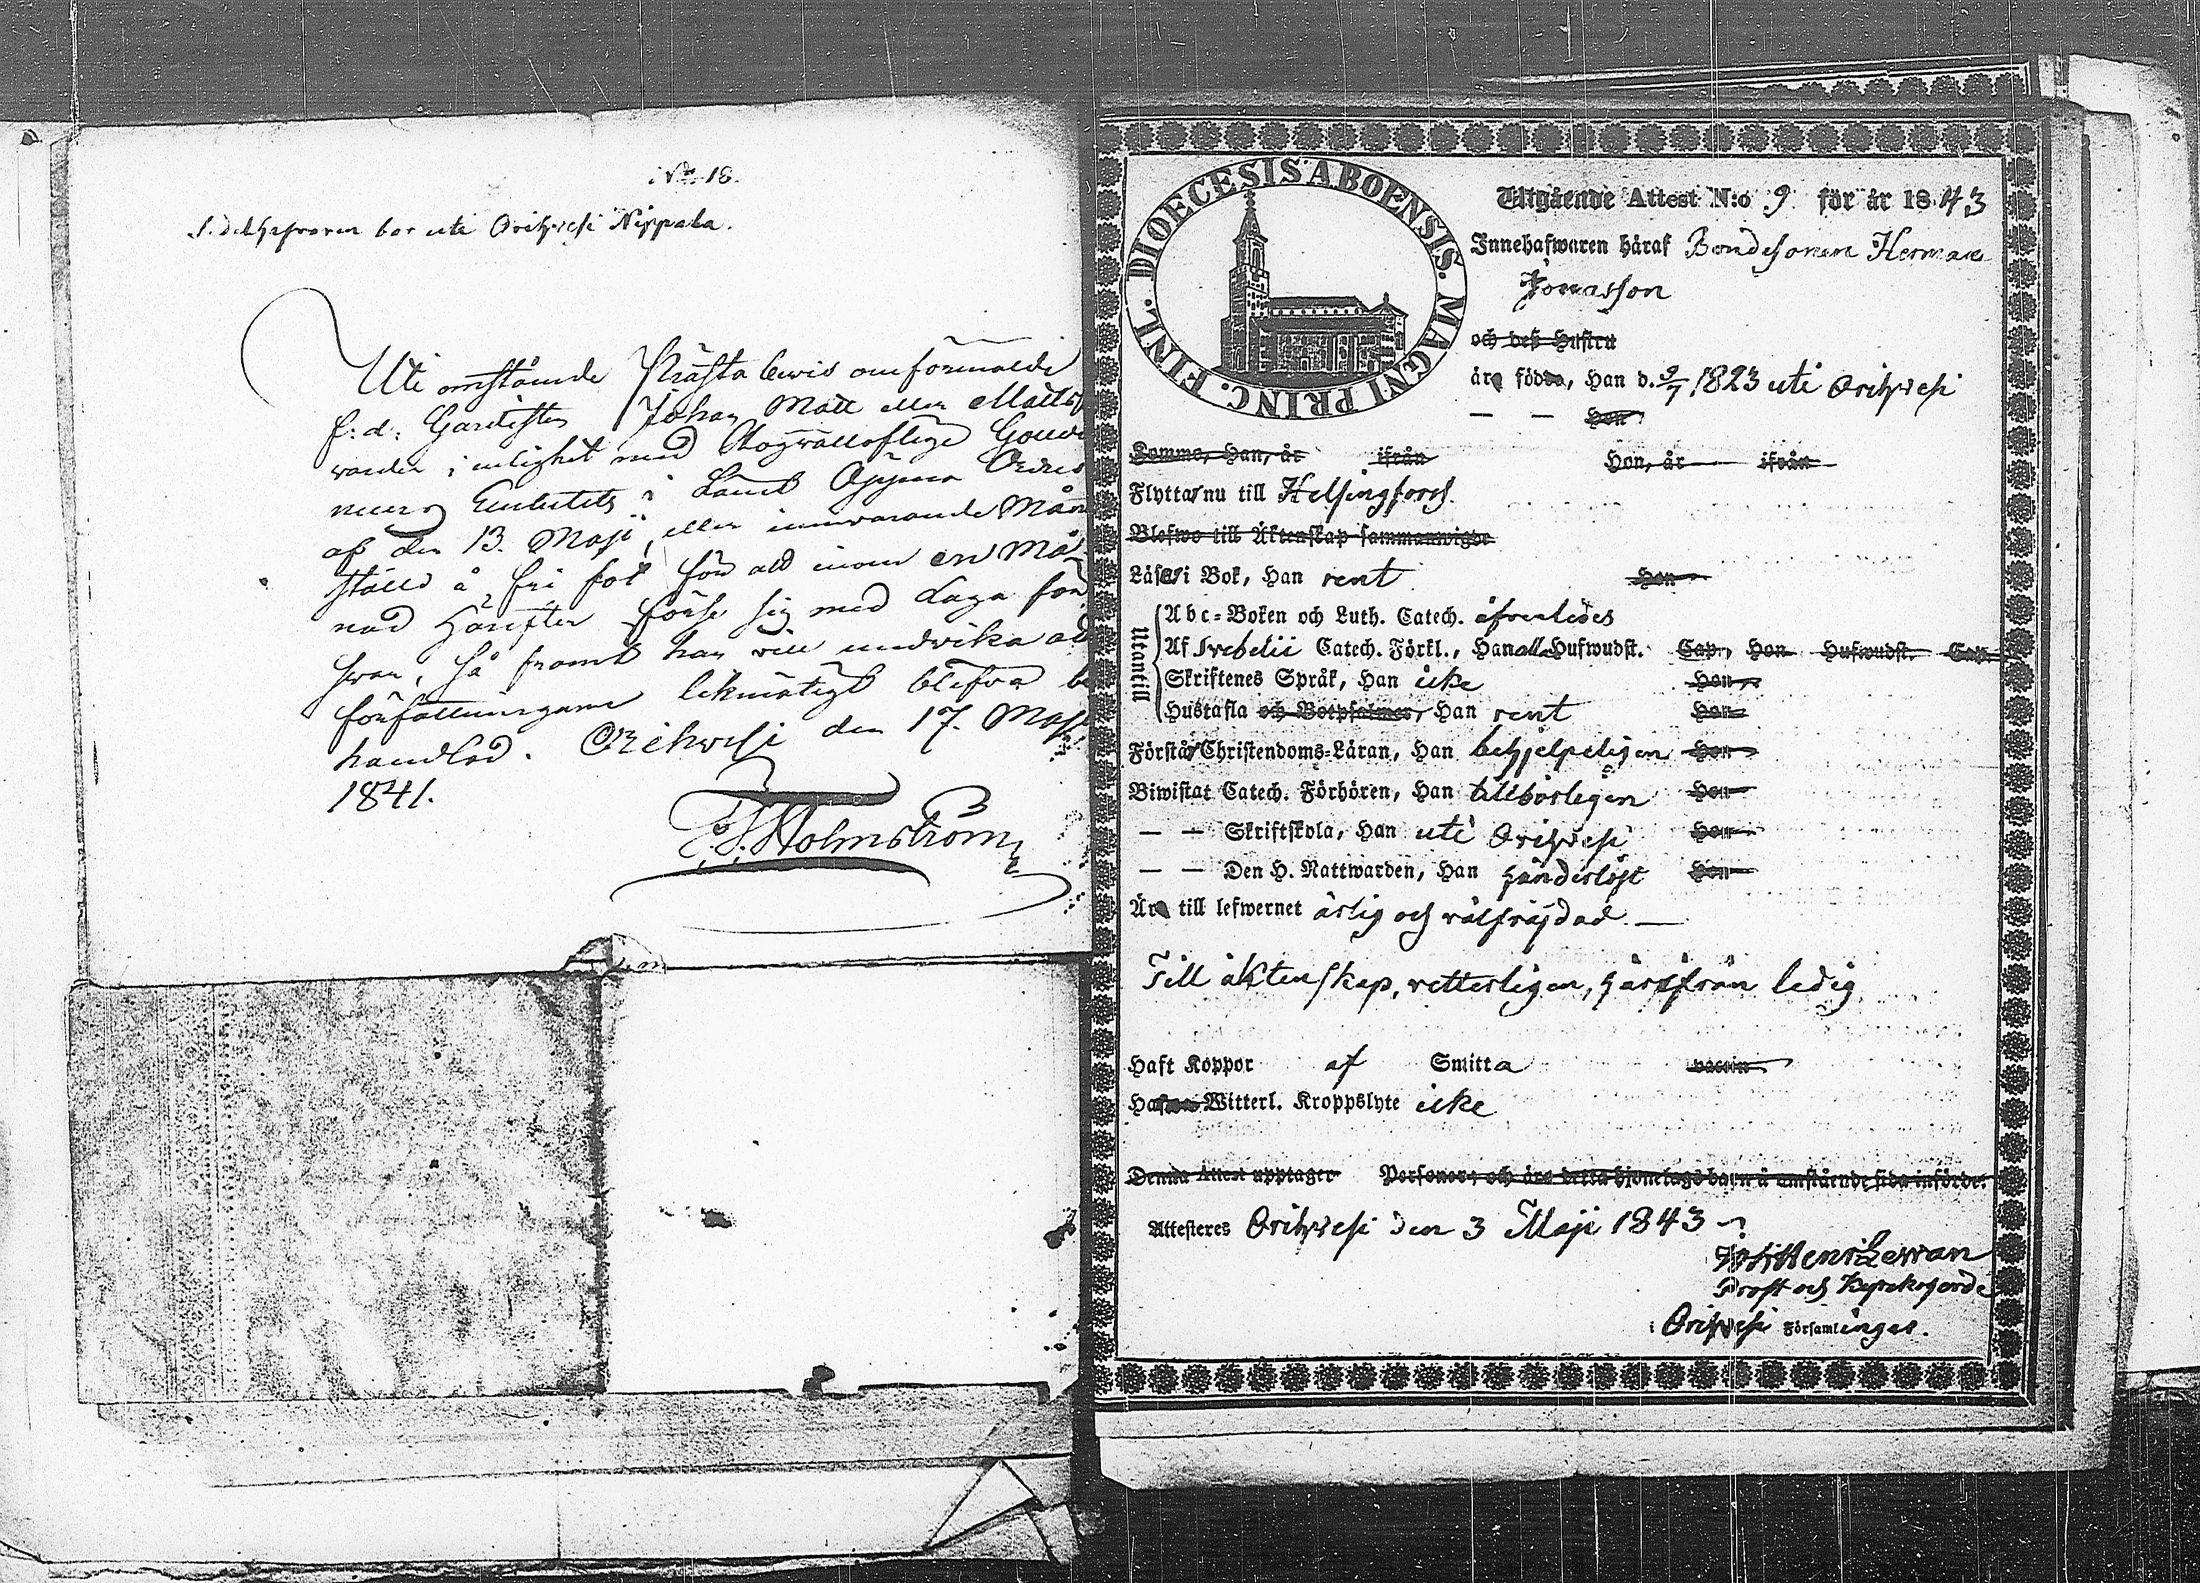 No. 18.
bor uti Orihvesi Nippala.
Uti omstämde Prästabewis omförmälde
f: d: Gardisten Johan Matt eller Matts
varder i enlighet med Högvälloflige Gouver
neurs Embetets i Länet Öppna Ordres
af den 13. Maji eller innevarande Mån
ställd å fri fot för att inom en Må
nad härefter förse sig med Laga för
svar, så framt han vill undvika at
författningarne likmätigt blifva be
handlad. Orihvesi den 17. Maji
1841.
Holmström
DIOECESIS ABOENSIS. MAGNI PRINC. FINL.
Utgående Attest N:o 9 för år 1843
Innehafwaren häraf Bondesonen Herman
Jonasson
och deß Hustru
äro födde, Han d. 9/7 1823 uti Orihvesi
— — Hon
Komme, Han, år ifrån Hon, år ifrån
Flyttar nu till Helsingfors.
Blefwo till Äktenskap sammanwigde
Läser i Bok, Han rent Hon
Utantill
Abc-Boken och Luth. Catech. äfvenledes
Af Svebelii Catech. Förkl., Han alla Hufwudst. Cap., Hon Hufwudst. Cap.
Skriftenes Språk, Han icke Hon,
Hustafla och Botpsalmer, Han rent Hon
Förstår Christendoms-Läran, Han behjelpeligen Hon
Biwistat Catech. Förhören, Han tillbörligen Hon
— — Skriftskola, Han uti Orihvesi Hon
— — Den H. Nattwarden, Han händerlöst Hon
Är till lefwernet ärlig och välfräjdad. —
Till äktenskap, vetterligen, härifrån ledig
Haft Koppor af Smitta vaccin
Hafwa Witterl. Kroppslyte icke
Denna Attest upptager Personer, och äro detta hjonelags barn å omstående sida införde.
Attesteres Orihvesi den 3 Maji 1843
Prost och Kyrkoherde
i Orihvesi Församlingar.